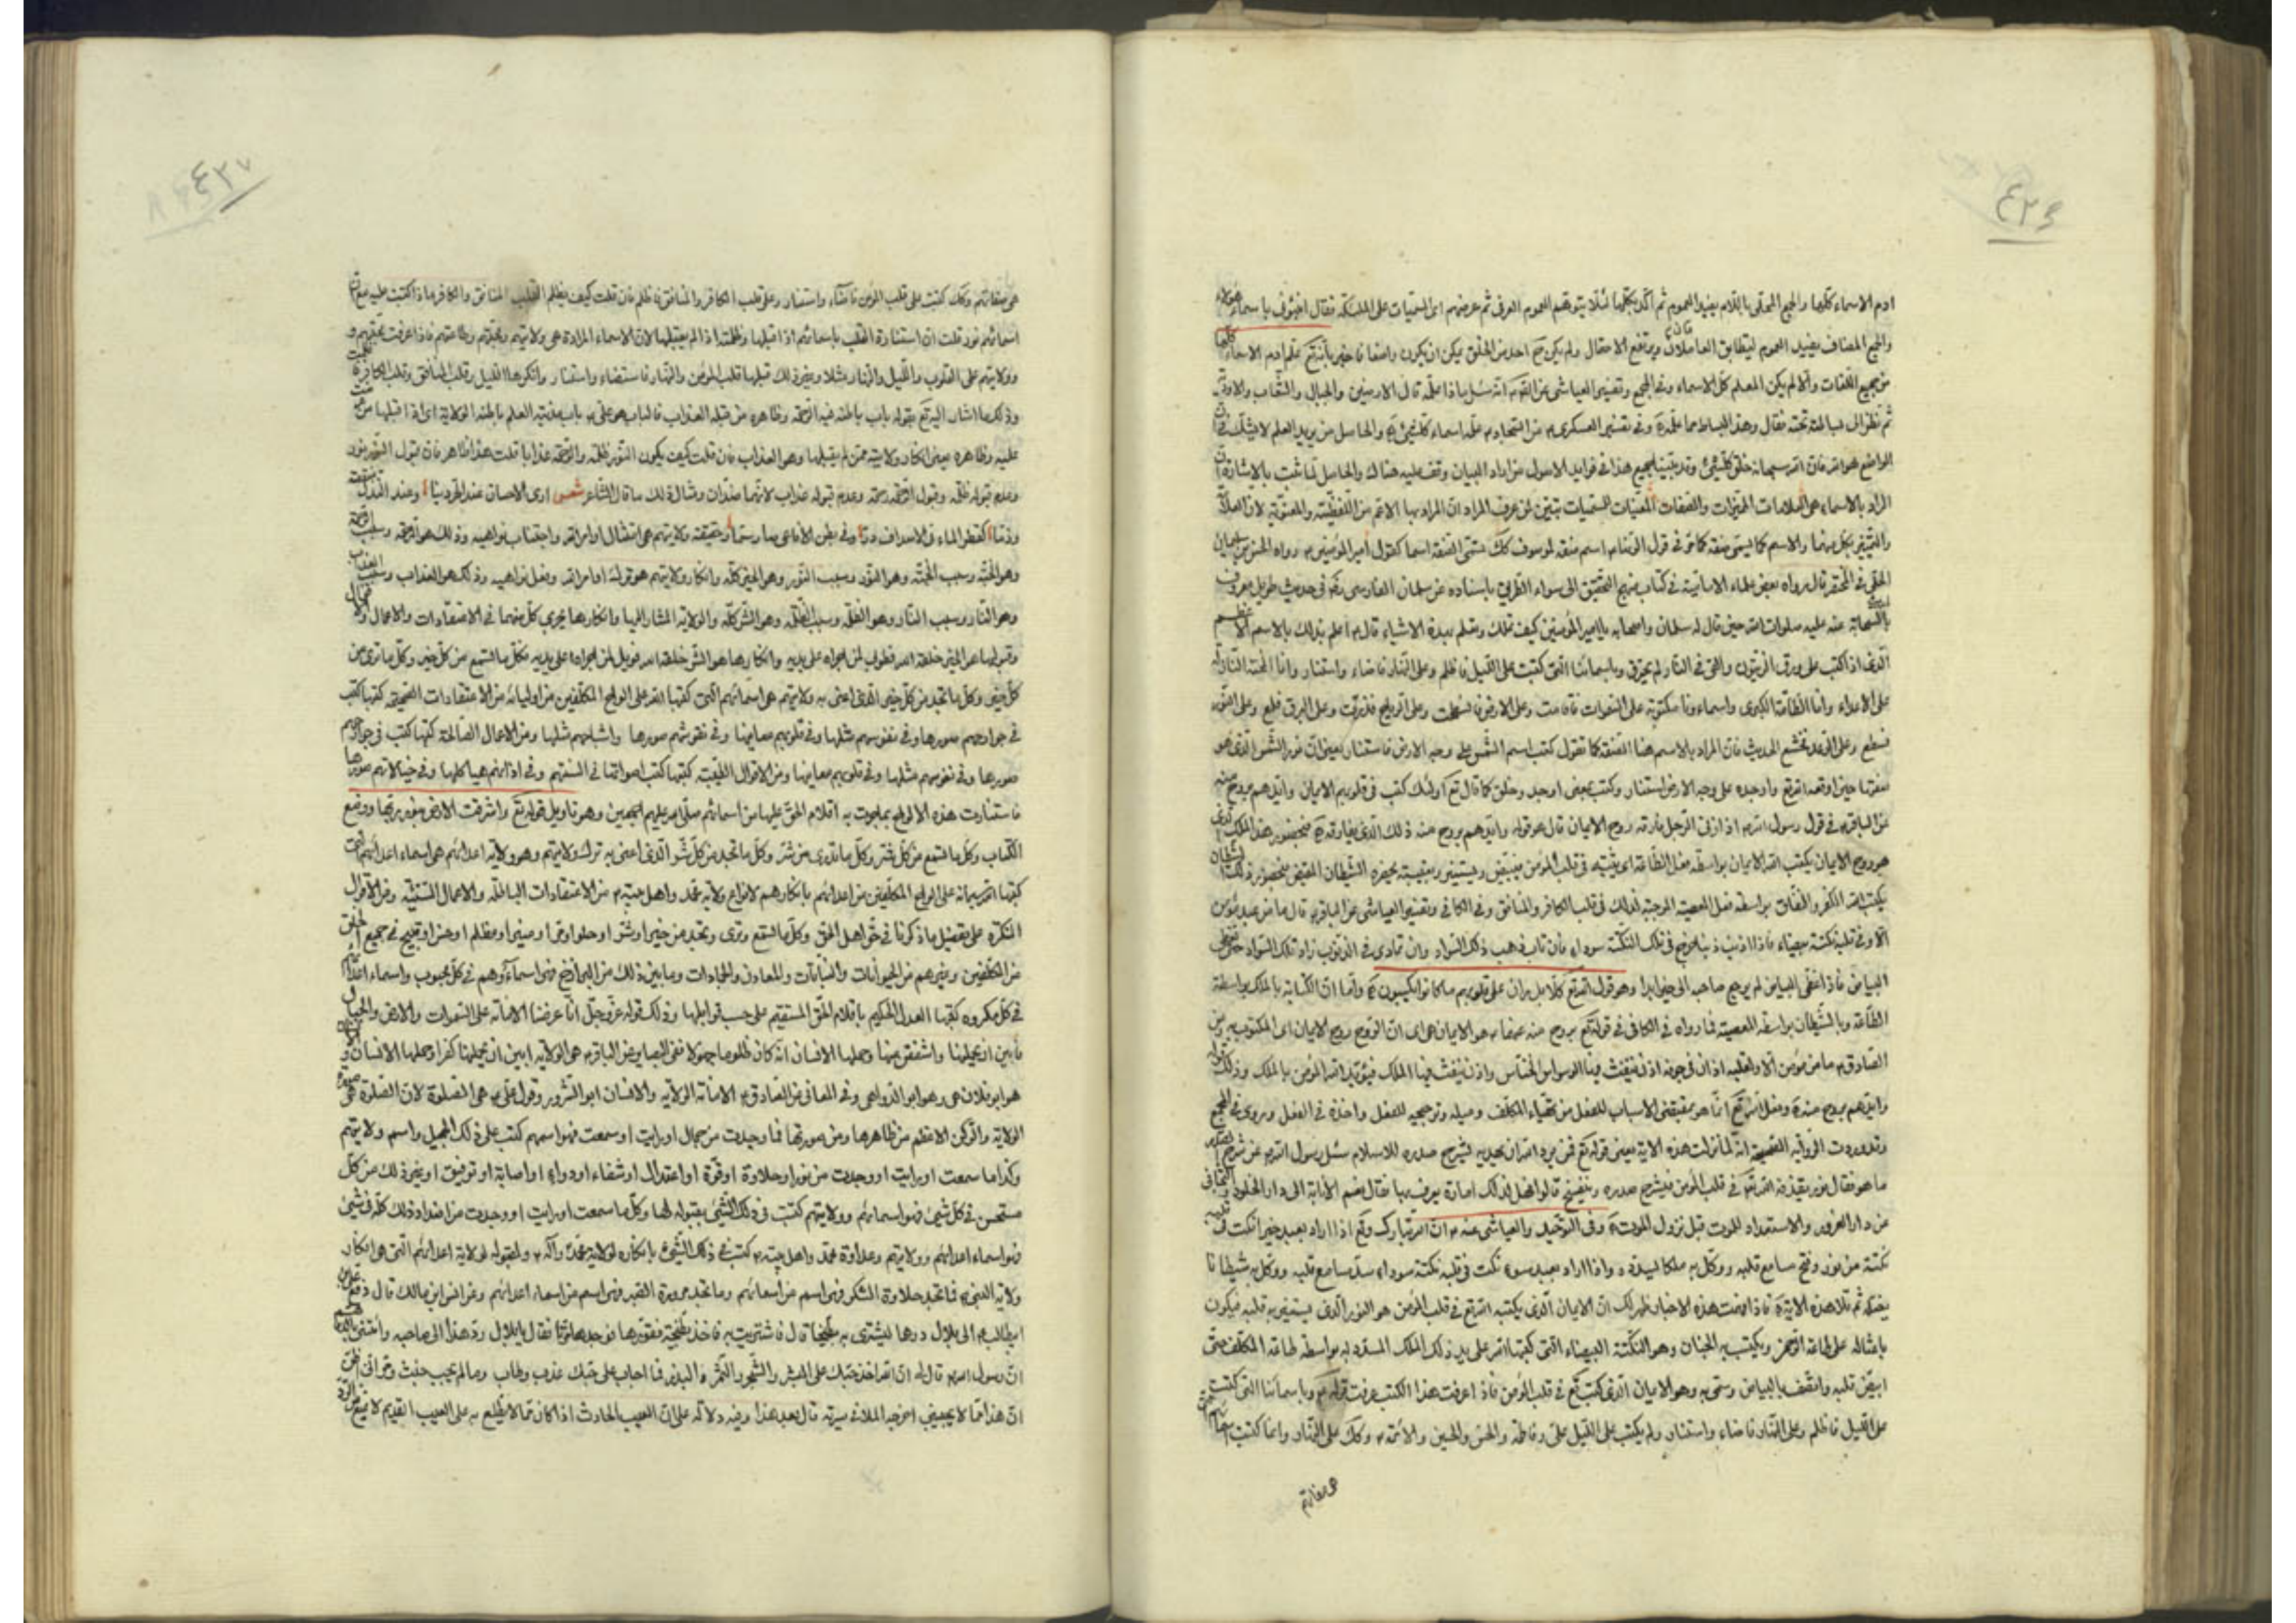 ٤٢٦
ادم الاسماء كلها والجمع المحلى باللام يفيد العموم ثم اكد بكلها لئلا يتوهم العموم العرفى ثم عرضهم اى المسميات على الملئكة فقال انبئونى باسماء هؤلاء
والجمع المضاف يفيد العموم ليتطابق العاملان ويرتفع الاحتمال ولم يكن احد من الخلق يمكن ان يكون واضعا فاخبر بأنه تع علم ادم الاسماء كلها
من جميع اللغات والا لم يكن المعلم كل الاسماء وفى المجمع وتفسير العياشى عن الصادق انه سئل ماذا علمه قال الارضين والجبال والشعاب والاودية
ثم نظر الى بساط تحته فقال وهذا البساط مما علمه وفى تفسير العسكرى عن السجاد علمه اسماء كل شئ والحاصل من يريد العلم لا يشك فى ان
الواضع هو الله فان الله سبحانه خلق كل شئ وقد بينت لجميع هذا فى فوايد الاصول من اراد البيان وقف عليه هناك والحاصل لما ثبت بالاشارة ان
المراد بالاسماء هى العلامات المميزات والصفات المعينات للمسميات تبين لمن عرف المراد ان المراد بها الاعم من اللفظية والمعنوية لاذ العلامة
والتمييز بكل منهما والاسم كما يسمى صفة كما مر فى قول الرضا اسم صفة لموصوف كك تسمى الصفة اسما كقول امير المؤمنين رواه الحسن بن سليمان
الحلى فى المختصر قال رواه بعض علماء الامامية فى كتاب منهج التحقيق الى سواء الطريق باسناده عن سلمان الفارسى فى حديث طويل معروف
بالسحابة عنه عليه صلوات الله حين قال له سلمان واصحابه يا امير المؤمنين كيف تملك وتعلم بهذه الاشياء قال اعلم بذلك بالاسم الاعظم
الذى اذا كتب على ورق الزيتون والقى فى النار لم يحترق وباسمائنا التى كتبت على الليل فاظلم وعلى النهار فاضاء واستنار وانا المحنة النازلة
على الاعداء وانا الطامة الكبرى واسماءونا مكتوبة على السموات فقامت وعلى الارض فسطحت وعلى الرياح فذرت وعلى البرق فلمع وعلى النور
فسطع وعلى الرعد فخشع الحديث فان المراد بالاسم هنا الصفة كما تقول كتب اسم الشمس على وجه الارض فاستنار يعنى ان نور الشمس الذى هو
صفتها حين اوقعه الله تع واوجده على وجه الارض استنار وكتب بمعنى اوجد وخلق كما قال تع اولئك كتب فى قلوبهم الايمان وايدهم بروح منه
عن الباقر فى قول رسول الله اذا زنى الرجل فارقه روح الايمان قال هو قوله وايدهم بروح منه ذلك الذى يفارقه فحضور هذا الملك الذى
هو روح الايمان يكتب الله الايمان بواسطة فعل الطاعة اى يثبته فى قلب المؤمن فيبيض ويستنير وبغيبته يحضره الشيطان المقيض فحضور ذلك الشيطان
يكتب الله الكفر والنفاق بواسطة فعل المعصية الموجبة لذلك فى قلب الكافر والمنافق وفى الكافى وتفسير العياشى عن الباقر قال ما من عبد مؤمن
الا وفى قلبه نكتة بيضاء فاذا اذنب ذنبا خرج فى تلك النكتة سوداء فان تاب ذهب ذلك السواد وان تمادى فى الذنوب زاد تلك السواد حتى يغطى
البياض فاذا غطى البياض لم يرجع صاحبه الى خير ابدا وهو قول الله تع كلا بل ران على قلوبهم ما كانوا يكسبون واما ان الكتابة بالملك بواسطة
الطاعة وبالشيطان بواسطة المعصية فما رواه فى الكافى فى قوله تع بروح منه عنهما هو الايمان اى ان الروح روح الايمان اى المكتوب به وعن
الصادق ما من مؤمن الا ولقلبه اذنان فى جوفه اذن ينفث فيها الوسواس الخناس واذن ينفث فيها الملك فيؤيد الله المؤمن بالملك وذلك قوله
وايدهم بروح منه وفعل الله تع انما هو بمقتضى الاسباب للفعل من تهياء المكلف وميله وترجيحه للفعل واخذه فى الفعل وروى فى المجمع
وقد وردت الرواية الصحيحة انه لما نزلت هذه الاية يعنى قوله تع فمن يرد الله ان يهديه يشرح صدره للاسلام سئل رسول الله عن شرح الصدر
ما هو فقال نور يقذفه الله فى قلب المؤمن فيشرح صدره وينفسح قالوا فهل لذلك امارة يعرف بها فقال نعم الانابة الى دار الخلود والتجافى
عن دار الغرور والاستعداد للموت قبل نزول الموت وفى التوحيد والعياشى عنه ان الله تبارك وتع اذا اراد بعبد خيرا نكت فى قلبه
نكتة من نور وفتح مسامع قلبه ووكل به ملكا يسدده واذا اراد بعبد سوء نكت فى قلبه نكتة سوداء وسد مسامع قلبه ووكل به شيطانا
يضله ثم تلا هذه الاية فاذا فهمت هذه الاخبار ظهر لك ان الايمان الذى يكتبه الله تع فى قلب المؤمن هو النور الذى يستنير به قلبه فيكون
باعثا له على طاعة الرحمن ويكتسب به الجنان وهو النكتة البيضاء التى كتبها الله على يد ذلك الملك المسدد له بواسطة طاعة المكلف حتى
ابيض قلبه واتصف بالبياض وسمى به وهو الايمان الذى كتب تع فى قلب المؤمن فاذا عرفت هذا الكتب عرفت قوله وباسمائنا التى كتبت
على الليل فاظلم وعلى النهار فاضاء واستنار ولم يكتب على الليل على وفاطمة والحسن والحسين والائمة وكك على النهار وانما كتبت اسماؤهم التى
هى صفاتهم
٤٢٧
هى صفاتهم وكك كتبت على قلب المؤمن فاضاء واستنار وعلى قلب الكافر والمنافق فاظلم فان قلت كيف يظلم القلب المنافق والكافر ماذا كتبت عليه مع ان
اسمائهم نور قلت ان استنارة القلب باسمائهم اذا قبلها وظلمته اذا لم يقبلها لان الاسماء المرادة هى ولايتهم ومحبتهم وطاعتهم فاذا عرضت محبتهم و
ولايتهم على القلوب والليل والنهار مثلا وغير ذلك قبلها قلب المؤمن والنهار فاستضاء واستنار وانكرها الليل وقلب المنافق وقلب الكافر فاظلمت
وذلك ما اشار اليه تع بقوله باب باطنه فيه الرحمة وظاهره من قبله العذاب فالباب هو على باب مدينة العلم باطنه الولاية اى اذا قبلها من عرضت
عليه وظاهره يعنى انكار ولايته ممن لم يقبلها وهو العذاب فان قلت كيف يكون النور ظلمة والرحمة عذابا قلت هذا ظاهر فان قبول النور نور
وعدم قبوله ظلمة وقبول الرحمة رحمة وعدم قبوله عذاب لانهما ضدان ومثال ذلك ما قال الشاعر شعر ارى الاحسان عند الحر دينا وعند النذل منقصة
وذما كقطر الماء فى الاصداف درا وفى بطن الافاعى صار سما وحقيقة ولايتهم هى امتثال اوامر الله واجتناب نواهيه وذلك هو الرحمة وسبب الرحمة
وهو الجنة وسبب الجنة وهو النور وسبب النور وهو الخير كله وانكار ولايتهم هو ترك اوامر الله وفعل نواهيه وذلك هو العذاب وسبب العذاب
وهو النار وسبب النار وهو الظلمة وسبب الظلمة وهو الشر كله والولاية المشار اليها وانكارها يجرى كل منهما فى الاعتقادات والاعمال والاقوال
وقبولها هو الخير خلقه الله فطوبى لمن اجراه على يديه وانكارها هو الشر خلقه الله فويل لمن اجراه على يديه فكل ما تسمع من كل خير وكل ما ترى من
كل خير وكل ما تجد من كل خير الذى اعنى به ولايتهم هى اسمائهم التى كتبها الله على الواح المكلفين من اوليائه من الاعتقادات الصحيحة كتبها كتب
فى جوارحهم صورها وفى نفوسهم مثلها وفى قلوبهم معانيها وفى نفوسهم صورها واشباحهم مثلها ومن الاعمال الصالحة كتبها كتب فى جوارحهم
صورها وفى نفوسهم مثلها وفى قلوبهم معانيها ومن الاقوال الطيبة كتبها كتب اصواتها فى السنتهم وفى اذانهم هياكلها وفى خيالاتهم صورها
فاستنارت هذه الالواح بما جرت به اقلام الحق عليها من اسمائهم صلى الله عليهم اجمعين وهو تاويل قوله تع واشرقت الارض بنور ربها ووضع
الكتاب وكل ما تسمع من كل شر وكل ما ترى من شر وكل ما تجد من كل شر الذى اعنى به ترك ولايتهم وهو ولاية اعدائهم هى اسماء اعدائهم التى
كتبها الله سبحانه على الواح المكلفين من اعدائهم بانكارهم لانواع ولاية محمد واهل بيته من الاعتقادات الباطلة والاعمال السيئة ومن الاقوال
المنكرة على تفصيل ما ذكرنا فى حق اهل الحق وكل ما تسمع وترى وتجد من خير او شر او حلو او مر او منير او مظلم او حسن او قبيح فى جميع الخلق
من المكلفين وغيرهم من الحيوانات والنباتات والمعادن والجمادات وما بين ذلك من البرازخ فهو اسماؤهم فى كل محبوب واسماء اعدائهم
فى كل مكروه كتبها العدل الحكيم باقلام الحق المستقيم على حسب قوابلها وذلك قوله عز وجل انا عرضنا الامانة على السموات والارض والجبال
فابين ان يحملنها واشفقن منها وحملها الانسان انه كان ظلوما جهولا ففى البصاير عن الباقر هى الولاية ابين ان يحملنها كفرا وحملها الانسان والانسان
هو ابو فلان هى وهو ابو الدواهى وفى المعانى عن الصادق الامانة الولاية والانسان ابو الشرور وقول على هى الصلوة لان الصلوة هى صورة
الولاية والركن الاعظم من ظاهرها ومن صورتها فما وجدت من جمال او رايت او سمعت فهو اسمهم كتب على ذلك الجميل واسم ولايتهم
وكذا ما سمعت او رايت او وجدت من نور او حلاوة او قوة او اعتدال او شفاء او دواء او اصابة او توفيق او غير ذلك من كل
مستحسن فى كل شئ فهو اسمائهم وولايتهم كتبت فى ذلك الشئ بقبوله لها وكل ما سمعت او رايت او وجدت من اضداد ذلك كله فى شئ
فهو اسماء اعدائهم وولايتهم وعداوة محمد واهل بيته كتب فى ذلك الشئ بانكاره لولاية محمد وآله ولقبوله لولاية اعدائهم التى هى انكار
ولاية النبى فما تجد حلاوة السكر فهى اسم من اسمائهم وما تجد مرورة الصبر فهى اسم من اسماء اعدائهم وعن انس ابن مالك قال دفع على بن
ابيطالب الى بلال درهما ليشترى به بطيخا قال فاشتريت به فاخذ بطيخة فقورها فوجدها مرة فقال يا بلال رد هذا الى صاحبه وائتنى بالدرهم
ان رسول الله قال لى ان الله اخذ حبك على البشر والشجر والثمر والبذر فما اجاب على حبك عذب وطاب وما لم يجب خبث ومر وانى اظن
ان هذا مما لا يحبنى اخرجه الملا فى سيرته قال بعد هذا وفيه دلالة على ان العيب الحادث اذا كان مما لا يطلع به على العيب القديم لا يمنع من الرد